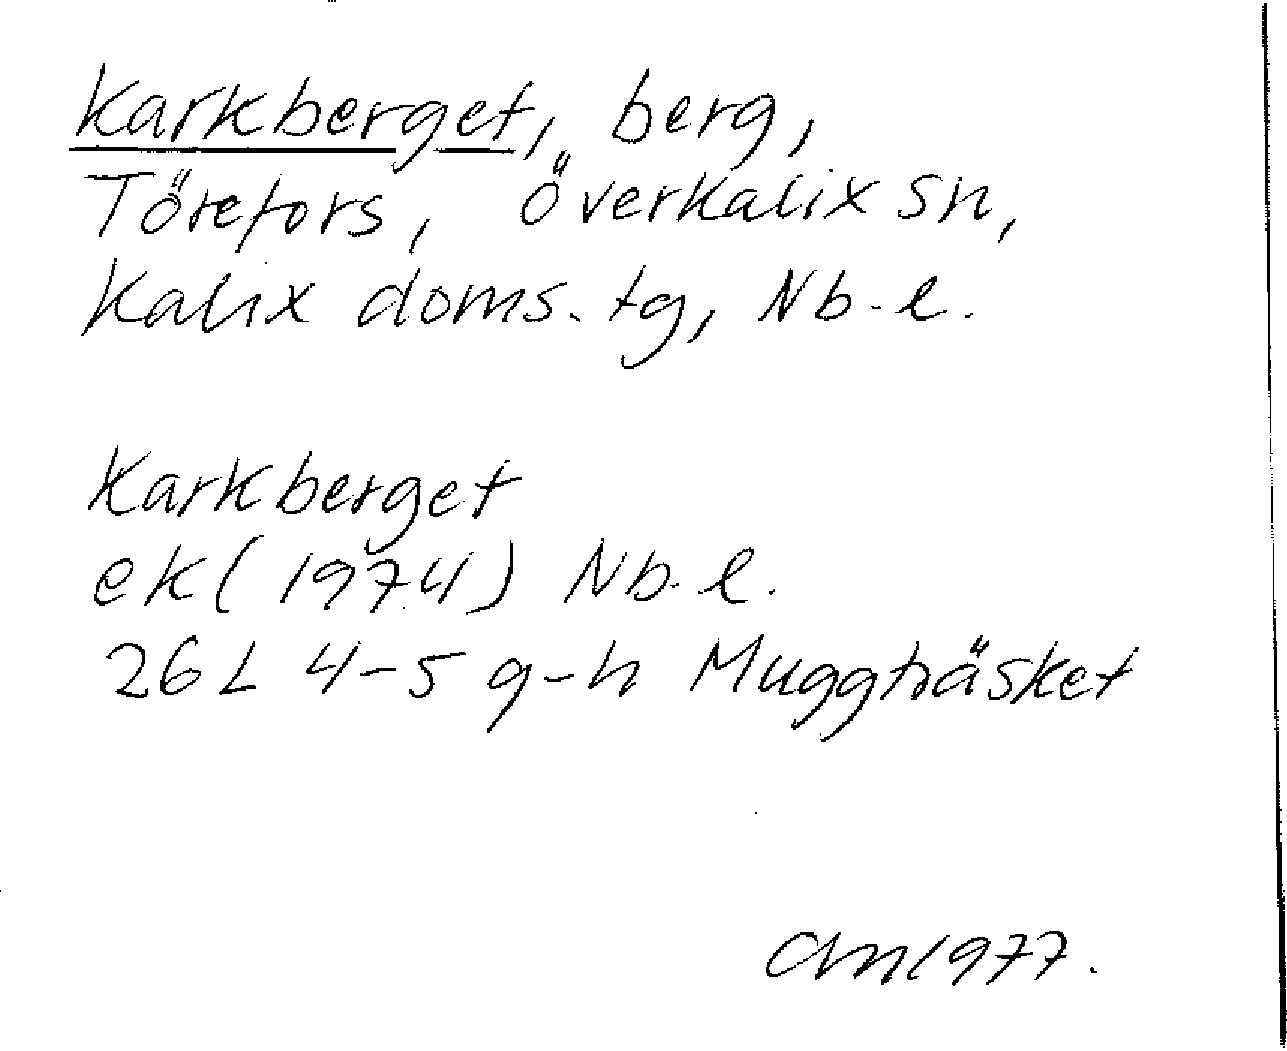 Karkberget, berg,
Törefors, Överkalix sn,
Kalix doms. tg, Nb. l.
Karkberget
ek (1974) Nb. l.
26 L 4-5 g-h Muggträsket
1977.